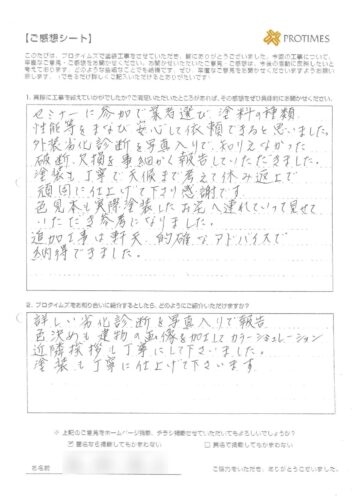 【ご感想シート】
PROTIMES
このたびは、プロタイムズで塗装工事をさせていただき、誠にありがとうございました。今回の工事について、
率直なご意見・ご感想をお聞かせください。お聞かせいただいたご意見・ご感想は、今後の活動に反映したいと
考えております。どのような些細なことでも結構です。ぜひ、率直なご意見をお聞かせくださいますようお願い
致します。(できるだけ詳しくご記入いただけるとありがたいです)
1. 実際に工事を終えていかがでしたか?ご満足いただいたところがあれば、その感想をぜひ具体的にお聞かせください。
セミナーに参加で業者選び、塗料の種類
性能等をまなび安心して依頼できると思いました。
外装劣化診断を写真入りで、知りえなかった
破断、欠損を事細かく報告していただきました。
塗装も丁寧で天候まで考えて休み返上で
頑固に仕上げて下さり感謝です。
色見本も実際塗装したお宅へ連れていって見せて
いただき参考になりました。
追加工事は軒天、的確なアドバイスで
納得できました。
2. プロタイムズをお知り合いに紹介するとしたら、どのようにご紹介いただけますか?
詳しい劣化診断を写真入りで報告
色決めも建物の画像を加工してカラーシュミレーション
近隣挨拶も丁寧にして下さいました。
塗装も丁寧に仕上げて下さいます。
※ 上記のご意見をホームページ掲載、チラシ掲載させていただいてもよろしいでしょうか?
☑ 匿名なら掲載してもかまわない □ 実名で掲載してもかまわない
お名前
ご協力をいただき、ありがとうございました。